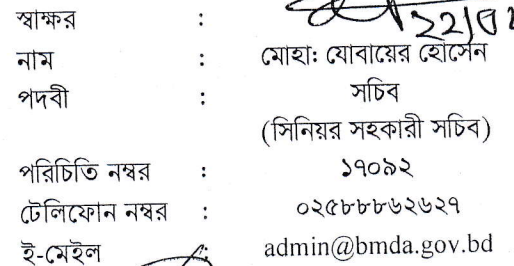 স্বাক্ষর :
22/0
নাম : মোহাঃ যোবায়ের হোসেন
পদবী : সচিব
(সিনিয়র সহকারী সচিব)
পরিচিতি নম্বর : ১৭০৯২
টেলিফোন নম্বর : ০২৫৮৮৮৬২৬২৭
ই-মেইল : admin@bmda.gov.bd